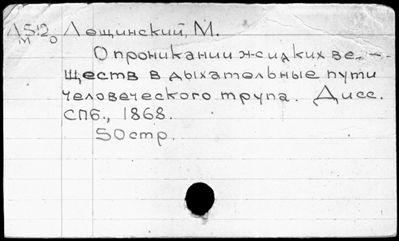 Л512 Лещинский, М.
М О
О проникании жидких ве-
ществ в дыхательные пути
человеческого трупа. Дисс.
СПб., 1868.
50 стр.